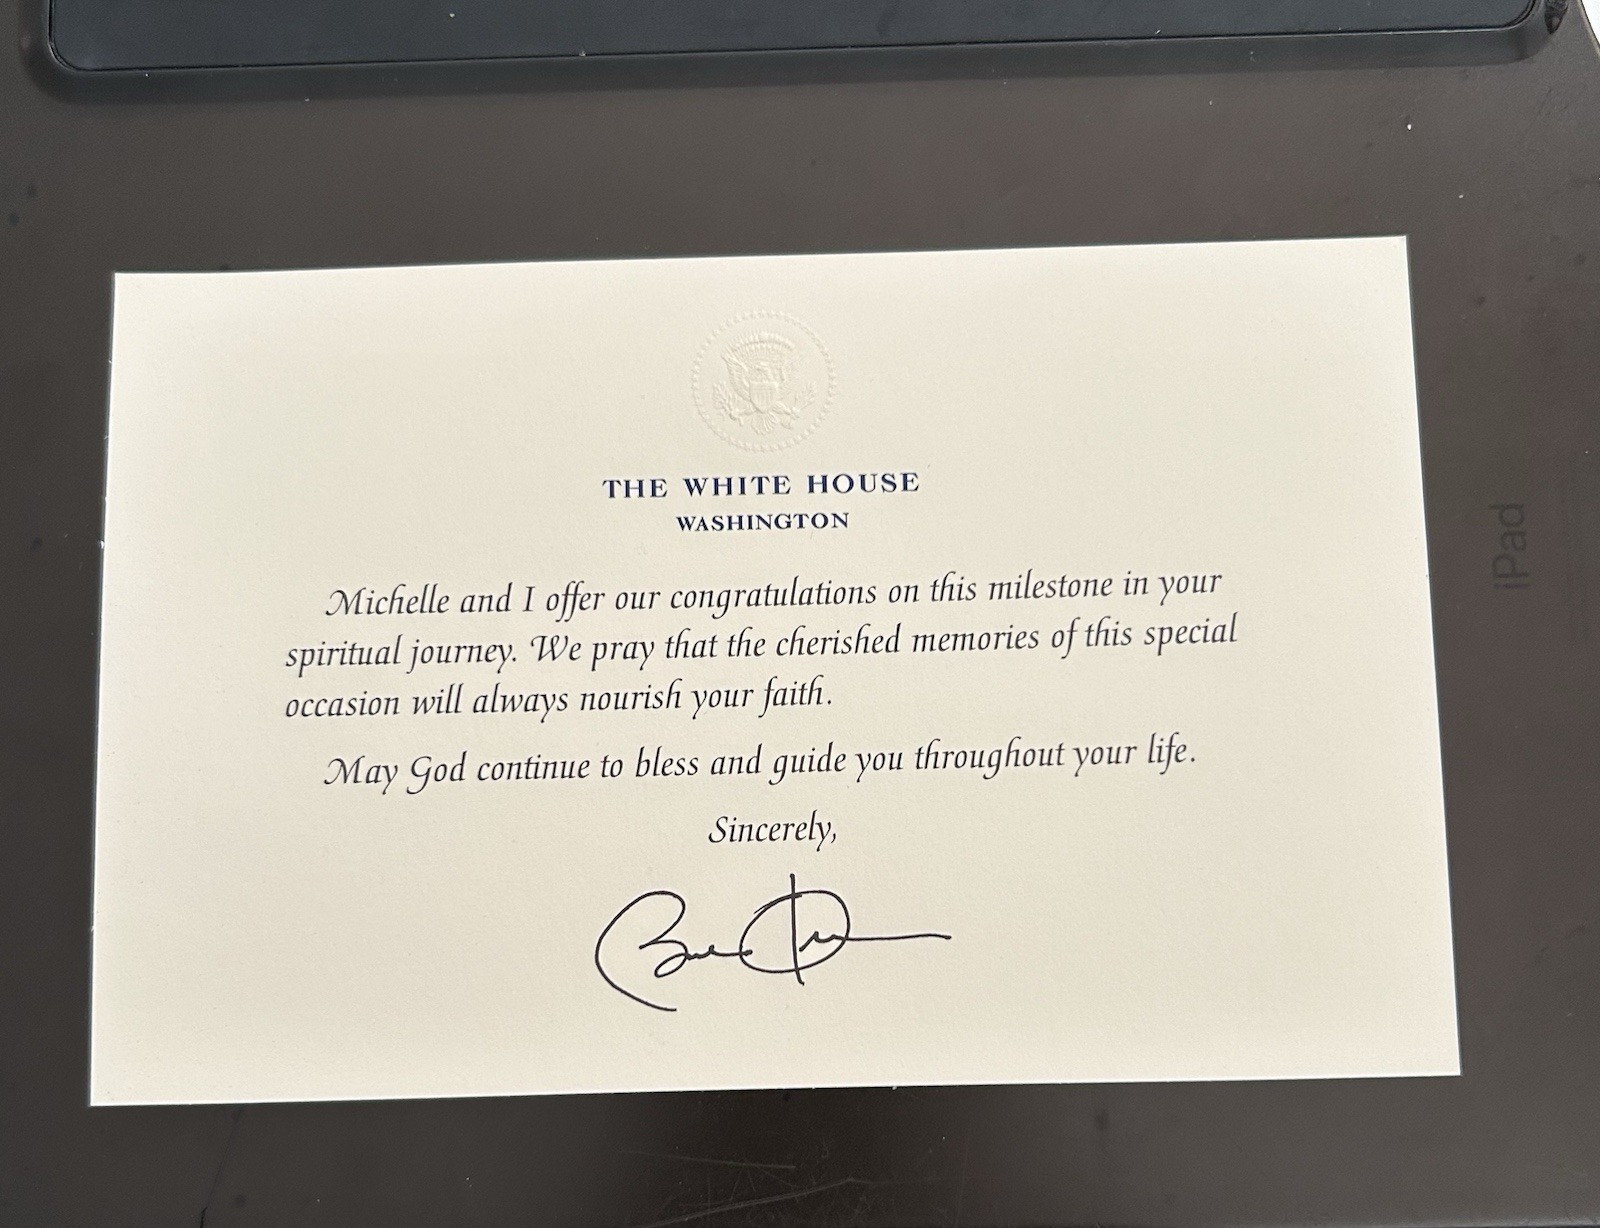 THE WHITE HOUSE
WASHINGTON
Michelle and I offer our congratulations on this milestone in your
spiritual journey. We pray that the cherished memories of this special
occasion will always nourish your faith.
May God continue to bless and guide you throughout your life.
Sincerely,
iPad